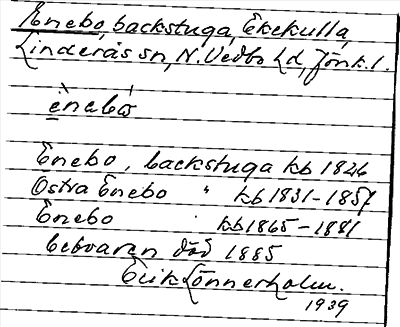 Enebo, backstuga, Ekekulla,
Linderås sn, N. Vedbo hd, Jönk. l.
Enebo, backstuga kb 1826
Östra Enebo " kb 1831-1857
Enebo " kb 1865-1881
Beboaren död 1885
Erik Lönnerholm.
1939